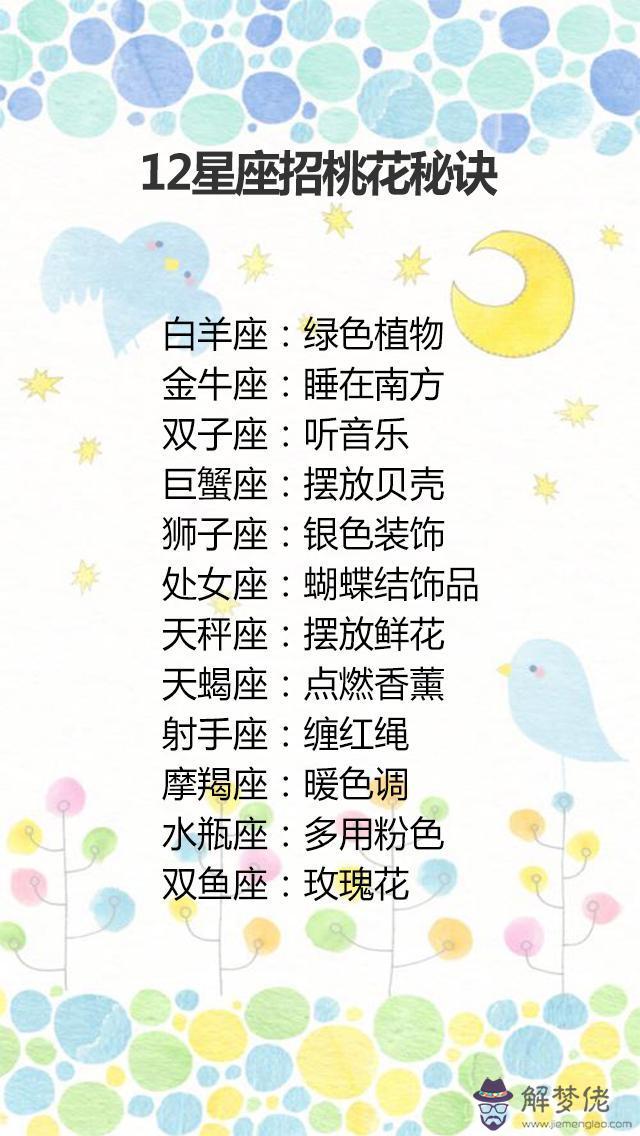 12星座招桃花秘诀
白羊座：绿色植物
金牛座：睡在南方
双子座：听音乐
巨蟹座：摆放贝壳
狮子座：银色装饰
处女座：蝴蝶结饰品
天秤座：摆放鲜花
天蝎座：点燃香薰
射手座：缠红绳
摩羯座：暖色调
水瓶座：多用粉色
双鱼座：玫瑰花
解梦佬
www.jiemenglao.com